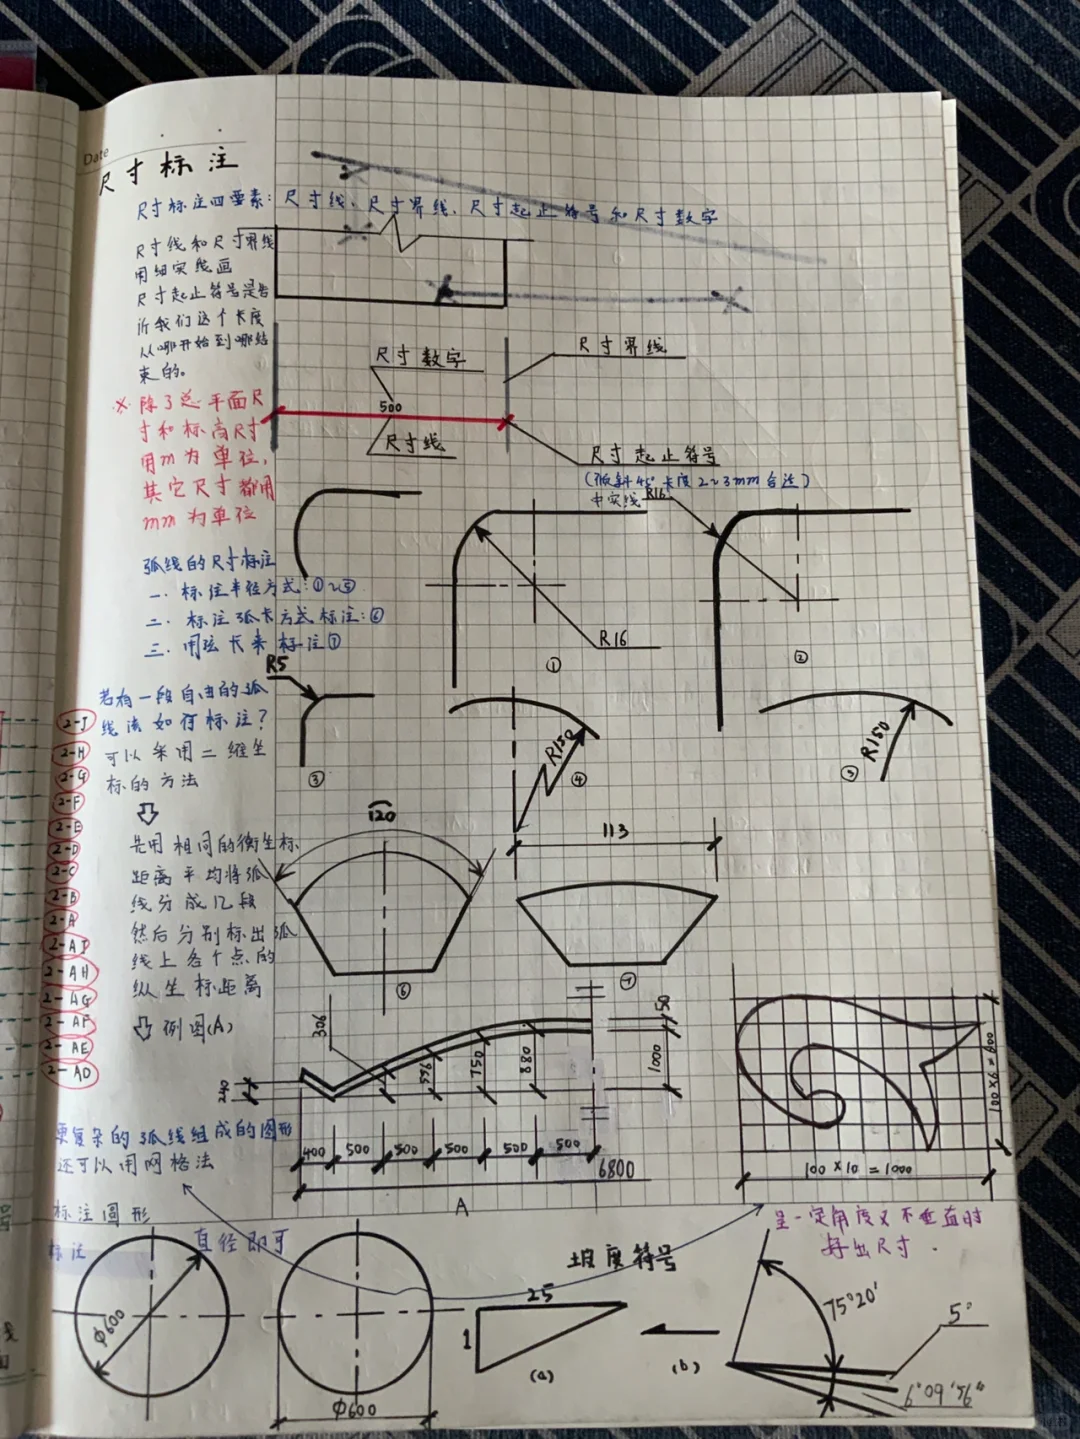 Date
尺寸标注
尺寸标注四要素：尺寸线、尺寸界线、尺寸起止符号和尺寸数字
尺寸线和尺寸界线
用细实线画
尺寸起止符号是告
诉我们这个长度
从哪开始到哪结
束的。
尺寸数字
尺寸界线
500
尺寸线
尺寸起止符号
(倾斜45°长度2~3mm合适)
中实线
※除了总平面尺
寸和标高尺寸
用m为单位，
其它尺寸都用
mm为单位
R16
弧线的尺寸标注
一、标注半径方式：①~⑤
二、标注弧长方式标注：⑥
三、用弦长来标注⑦
R16
①
②
R5
③
R150
④
R150
⑤
若有一段自由的弧
线该如何标注？
可以采用二维坐
标的方法
⇩
先用相同的横坐标
距离平均将弧
线分成几段
然后分别标出弧
线上各个点的
纵坐标距离
⇩例图(A)
2-I
2-H
2-G
2-F
2-E
2-D
2-C
2-B
2-A
2-AJ
2-AH
2-AG
2-AF
2-AE
2-AD
120
⑥
113
⑦
306
556
750
880
1000
50
400 500 500 500 500 500
6800
A
100×6=600
100×10=1000
更复杂的弧线组成的图形
还可以用网格法
标注圆形
标注
直径即可
ф600
ф600
坡度符号
25
1
(a)
(b)
呈一定角度又不垂直时
标出尺寸.
75°20′
5°
6°09′56″